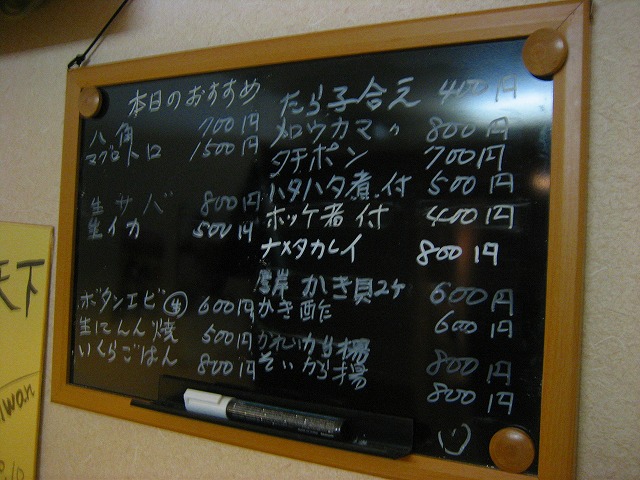 本日のおすすめ
八角 700円
マグロトロ 1500円
生サバ 800円
生イカ 500円
ボタンエビ 生 600円
生にしん焼 500円
いくらごはん 800円
たら子合え 400円
メロウカマ 〃 800円
タチポン 700円
ハタハタ煮付 500円
ホッケ煮付 400円
ナメタカレイ 800円
厚岸かき貝2ケ 600円
かき酢 600円
かれいから揚 800円
そいから揚 800円
天下